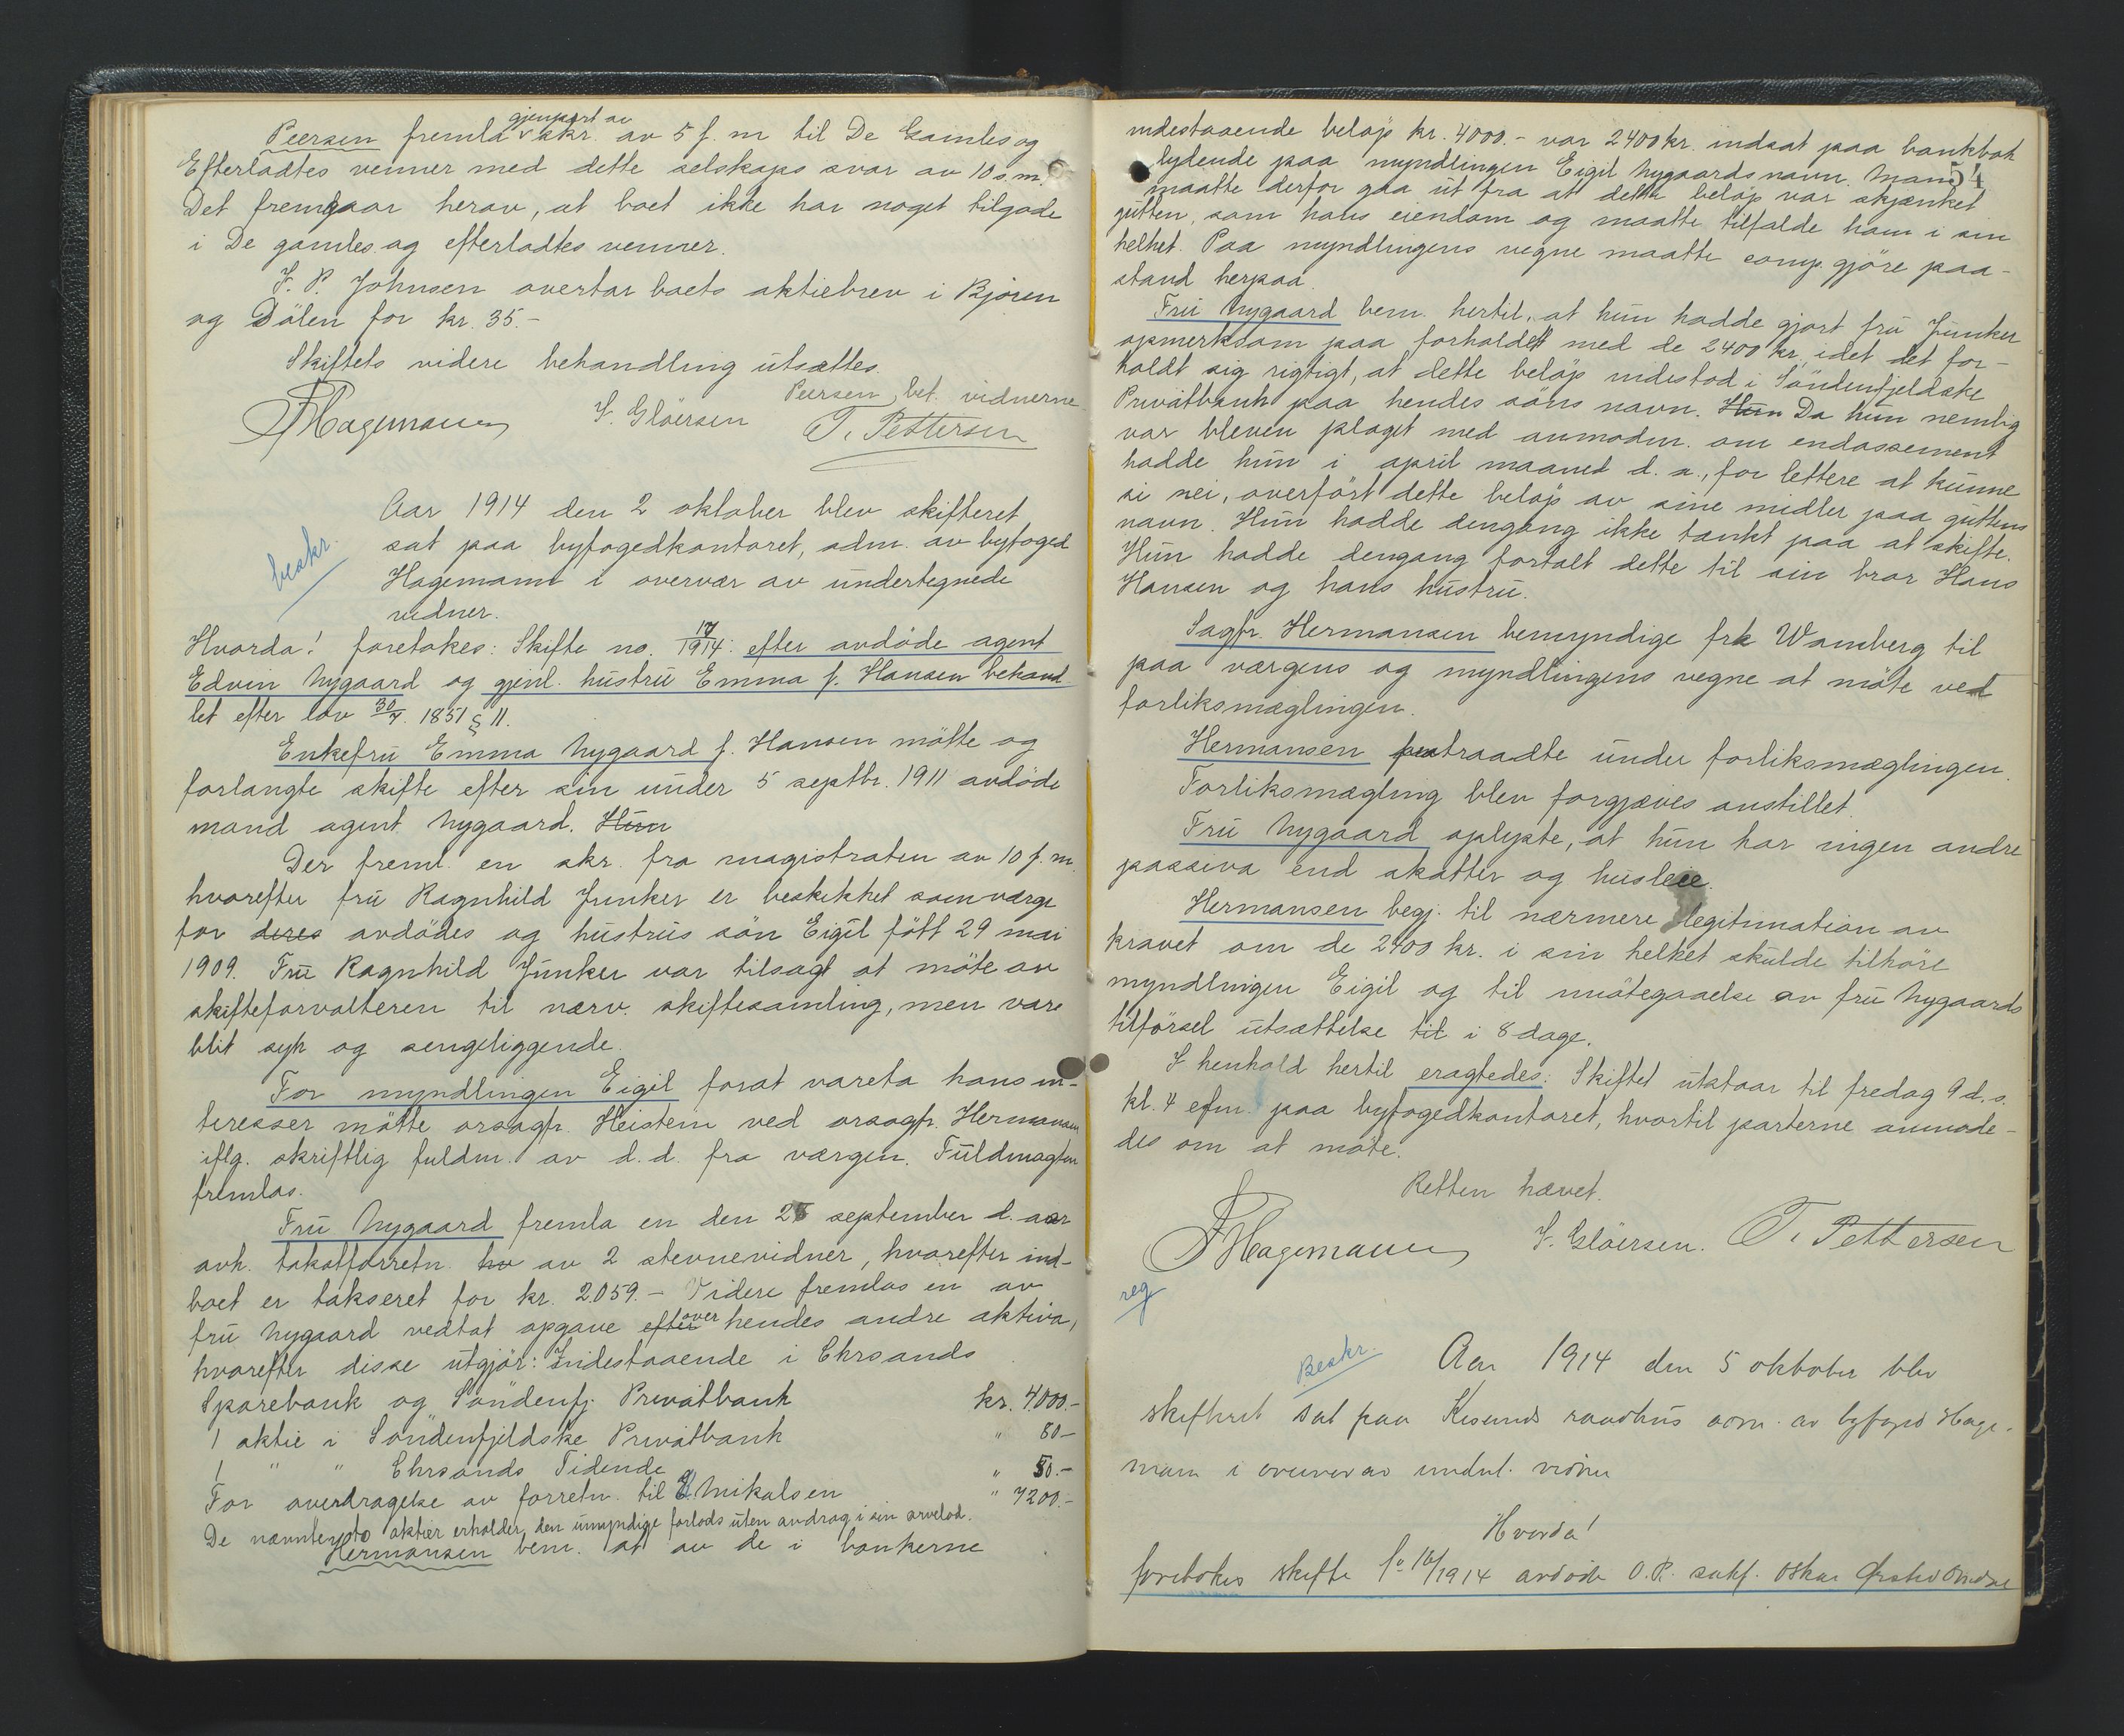 gjenpart av
Peersen fremla skr. av 5 f. m til De Gamles og
Efterladtes venner med dette selskaps svar av 10 s.m.
Det fremgaar herav, at boet ikke har noget tilgode
i De gamles og efterladtes venner.
J. P. Johnsen overtar boets aktiebrev i Bjoren
og Dölen for kr. 35.-
Skiftets videre behandling utsættes.
Peersen bet. vidnerne
FHagemann J. Glöersen T. Pettersen
beskr.
Aar 1914 den 2 oktober blev skifteret
sat paa byfogedkontoret, adm. av byfoged
Hagemann i overvær av undertegnede
vidner.
Hvorda! foretokes: Skifte no. 17/1914: efter avdöde agent
Edvin Nygaard og gjenl. hustru Emma f. Hansen behand
let efter lov 30/7. 1851 § 11.
Enkefru Emma Nygaard f. Hansen mötte og
forlangte skifte efter sin under 5 septbr. 1911 avdöde
mand agent Nygaard. Hun
Der freml. en skr. fra magistraten av 10 f. m.
hvorefter fru Ragnhild Junker er beskikket som værge
for deres avdödes og hustrus sön Eigil fött 29 mai
1909. Fru Ragnhild Junker var tilsagt at möte av
skifteforvalteren til nærv. skiftesamling, men var
blit syk og sengeliggende.
For myndlingen Eigil forat vareta hans in-
teresser mötte orsagfr. Heistein ved orsagfr. Hermansen
iflg. skriftlig fuldm. av d.d. fra værgen. Fuldmagten
fremlas.
Fru Nygaard fremla en den 25 september d. aar
avh. takstforretn. hv av 2 stevnevidner, hvorefter ind-
boet er takseret for kr. 2.059.- Videre fremlas en av
fru Nygaard vedtat opgave efter over hendes andre aktiva,
hvorefter disse utgjör: Indestaaende i Chrsands
Sparebank og Söndenfj. Privatbank kr. 4000.-
1 aktie i Söndenfjeldske Privatbank " 80-
1 " " Chrsands Tidende " 50.-
For overdragelse av forretn. til E. Mikalsen " 7200.-
De nævnte to aktier erholder den umyndige forlods uten avdrag i sin arvelod.
Hermansen bem. at av de i bankerne
54
indestaaende belöp kr. 4000.- var 2400 kr. indsat paa bankbok
lydende paa myndlingen Eigil Nygaards navn. Man
maatte derfor gaa ut fra at dette belöp var skjænket
gutten, som hans eiendom og maatte tilfalde ham i sin
helhet. Paa myndlingens vegne maatte comp. gjöre paa-
stand herpaa.
Fru Nygaard bem. hertil, at hun hadde gjort fru Junker
opmerksom paa forholdet med de 2400 kr., idet det for-
holdt sig rigtigt, at dette belöp indestod i Söndenfjeldske
Privatbank paa hendes söns navn. Hun Da hun nemlig
var bleven plaget med anmodn. om endossement
hadde hun i april maaned d. a., for lettere at kunne
si nei, overfört dette belöp av sine midler paa guttens
navn. Hun hadde dengang ikke tænkt paa at skifte.
Hun hadde dengang fortalt dette til sin bror Hans
Hansen og hans hustru.
Sagfr. Hermansen bemyndige frk Wamberg til
paa værgens og myndlingens vegne at möte ved
forliksmæglingen.
Hermansen fratraadte under forliksmæglingen.
Forliksmægling blev forgjæves anstillet.
Fru Nygaard oplyste, at hun har ingen andre
passiva end skatter og husleie.
Hermansen begj. til nærmere legitimation av
kravet om de 2400 kr. i sin helhet skulde tilhöre
myndlingen Eigil og til imötegaaelse av fru Nygaards
tilförsel utsættelse til i 8 dage.
I henhold hertil eragtedes: Skiftet utstaar til fredag 9 d. s.
kl. 4 efm. paa byfogedkontoret, hvortil parterne anmode-
des om at möte.
Retten hævet.
FHagemann J. Glöersen. T. Pettersen
reg
Beskr.
Aar 1914 den 5 oktober blev
skifteret sat paa Krsands raadhus adm. av byfoged Hage-
mann i overvær av undert. vidner
Hvorda!
foretokes skifte No 16/1914 avdöde O. P. sukf. Oskar